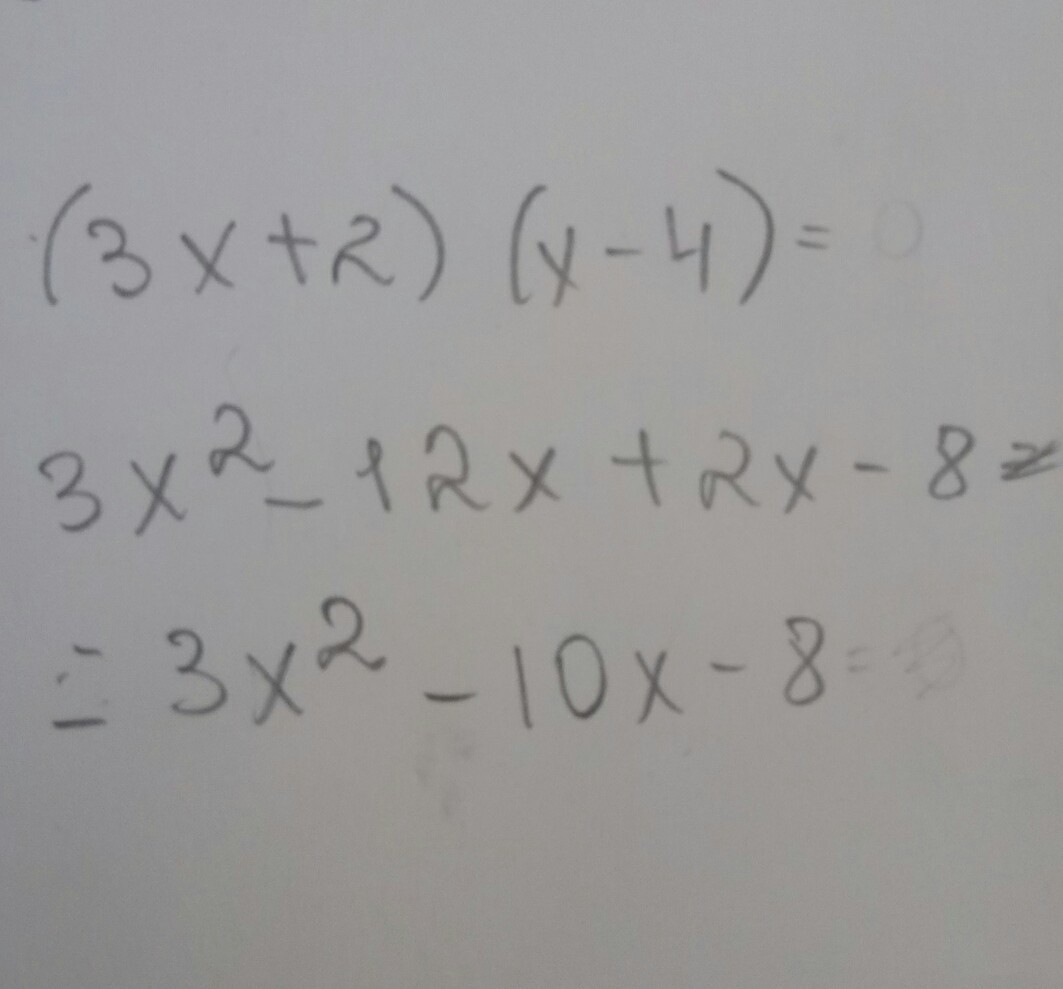 (3x+2) (x-4)=
3x²-12x+2x-8=
=3x²-10x-8